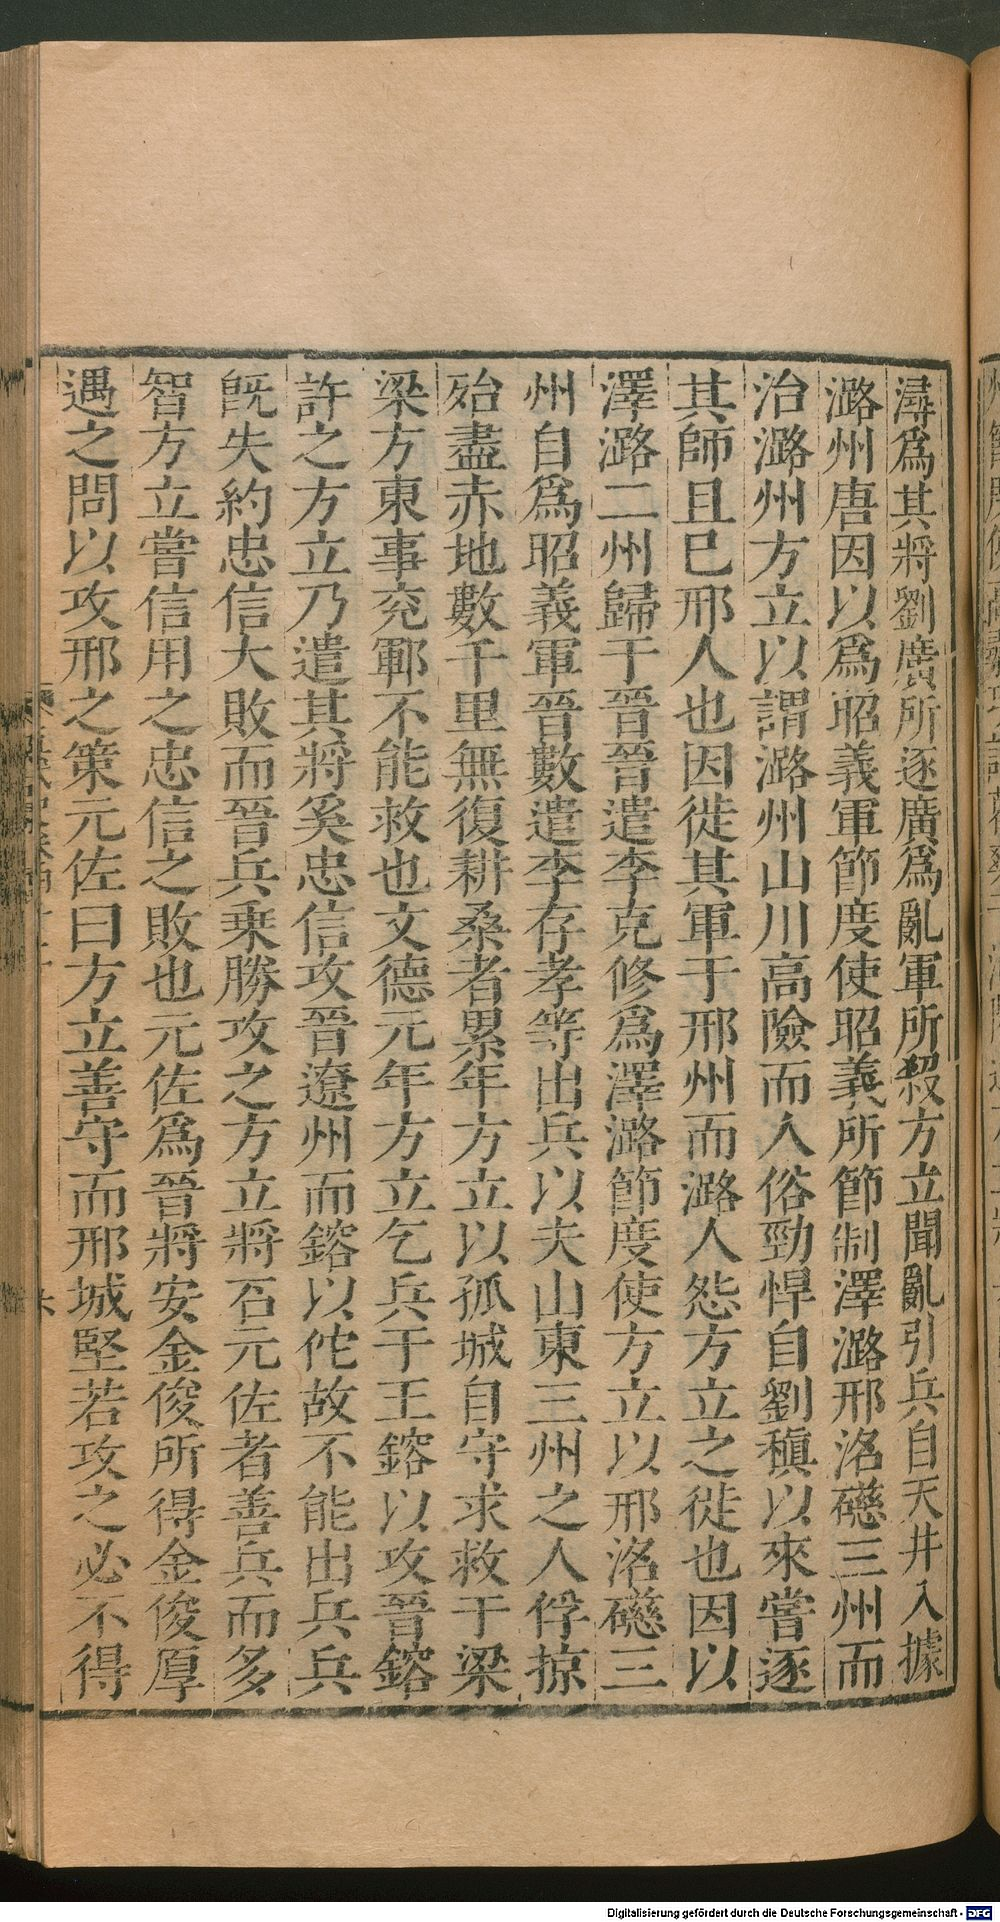 潯爲其將劉廣所逐廣爲亂軍所殺方立聞亂引兵自天井入據
潞州唐因以爲昭義軍節度使昭義所節制澤潞邢洺磁三州而
治潞州方立以謂潞州山川高險而人俗勁悍自劉稹以來嘗逐
其帥且巳邢人也因徙其軍于邢州而潞人怨方立之徙也因以
澤潞二州歸于晉晉遣李克修爲澤潞節度使方立以邢洺磁三
州自爲昭義軍晉數遣李存孝等出兵以夫山東三州之人俘掠
殆盡赤地數千里無復耕桑者累年方立以孤城自守求救于梁
梁方東事兖鄆不能救也文德元年方立乞兵于王鎔以攻晉鎔
許之方立乃遣其將奚忠信攻晉遼州而鎔以佗故不能出兵兵
旣失約忠信大敗而晉兵乗勝攻之方立將石元佐者善兵而多
智方立嘗信用之忠信之敗也元佐爲晉將安金俊所得金俊厚
遇之問以攻邢之策元佐曰方立善守而邢城堅若攻之必不得
Digitalisierung gefördert durch die Deutsche Forschungsgemeinschaft - DFG